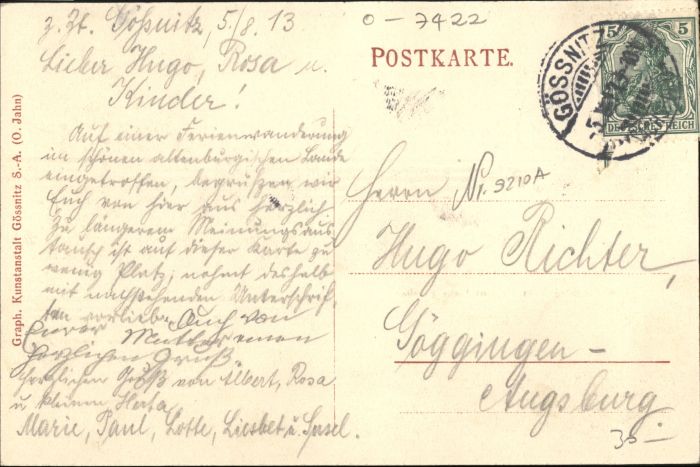 z. Zt. Gößnitz, 5/8. 13
Lieber Hugo, Rosa u.
Kinder!
Auf einer Ferienwanderung
im schönen altenburgischen Lande
eingetroffen, begrüßen wir
Euch von hier aus herzlich
Zu längerem Meinungsaus
tausch ist auf dieser Karte zu
wenig Platz, nehmt deshalb
mit nachstehenden Unterschrif-
ten vorlieb. Auch von
Eurer Mutter einen
herzlichen Gruß
herzlichen Gruß von Albert, Rosa
u. kleinen Herta
Marie, Paul, Lotte, Liesbet u.
Graph. Kunstanstalt Gössnitz S.-A. (O. Jahn)
0-7422
POSTKARTE.
GÖSSNITZ
5 5
DEUTSCHES REICH
Nr. 9210A
Herrn
Hugo Richter,
Göggingen-
Augsburg
35-